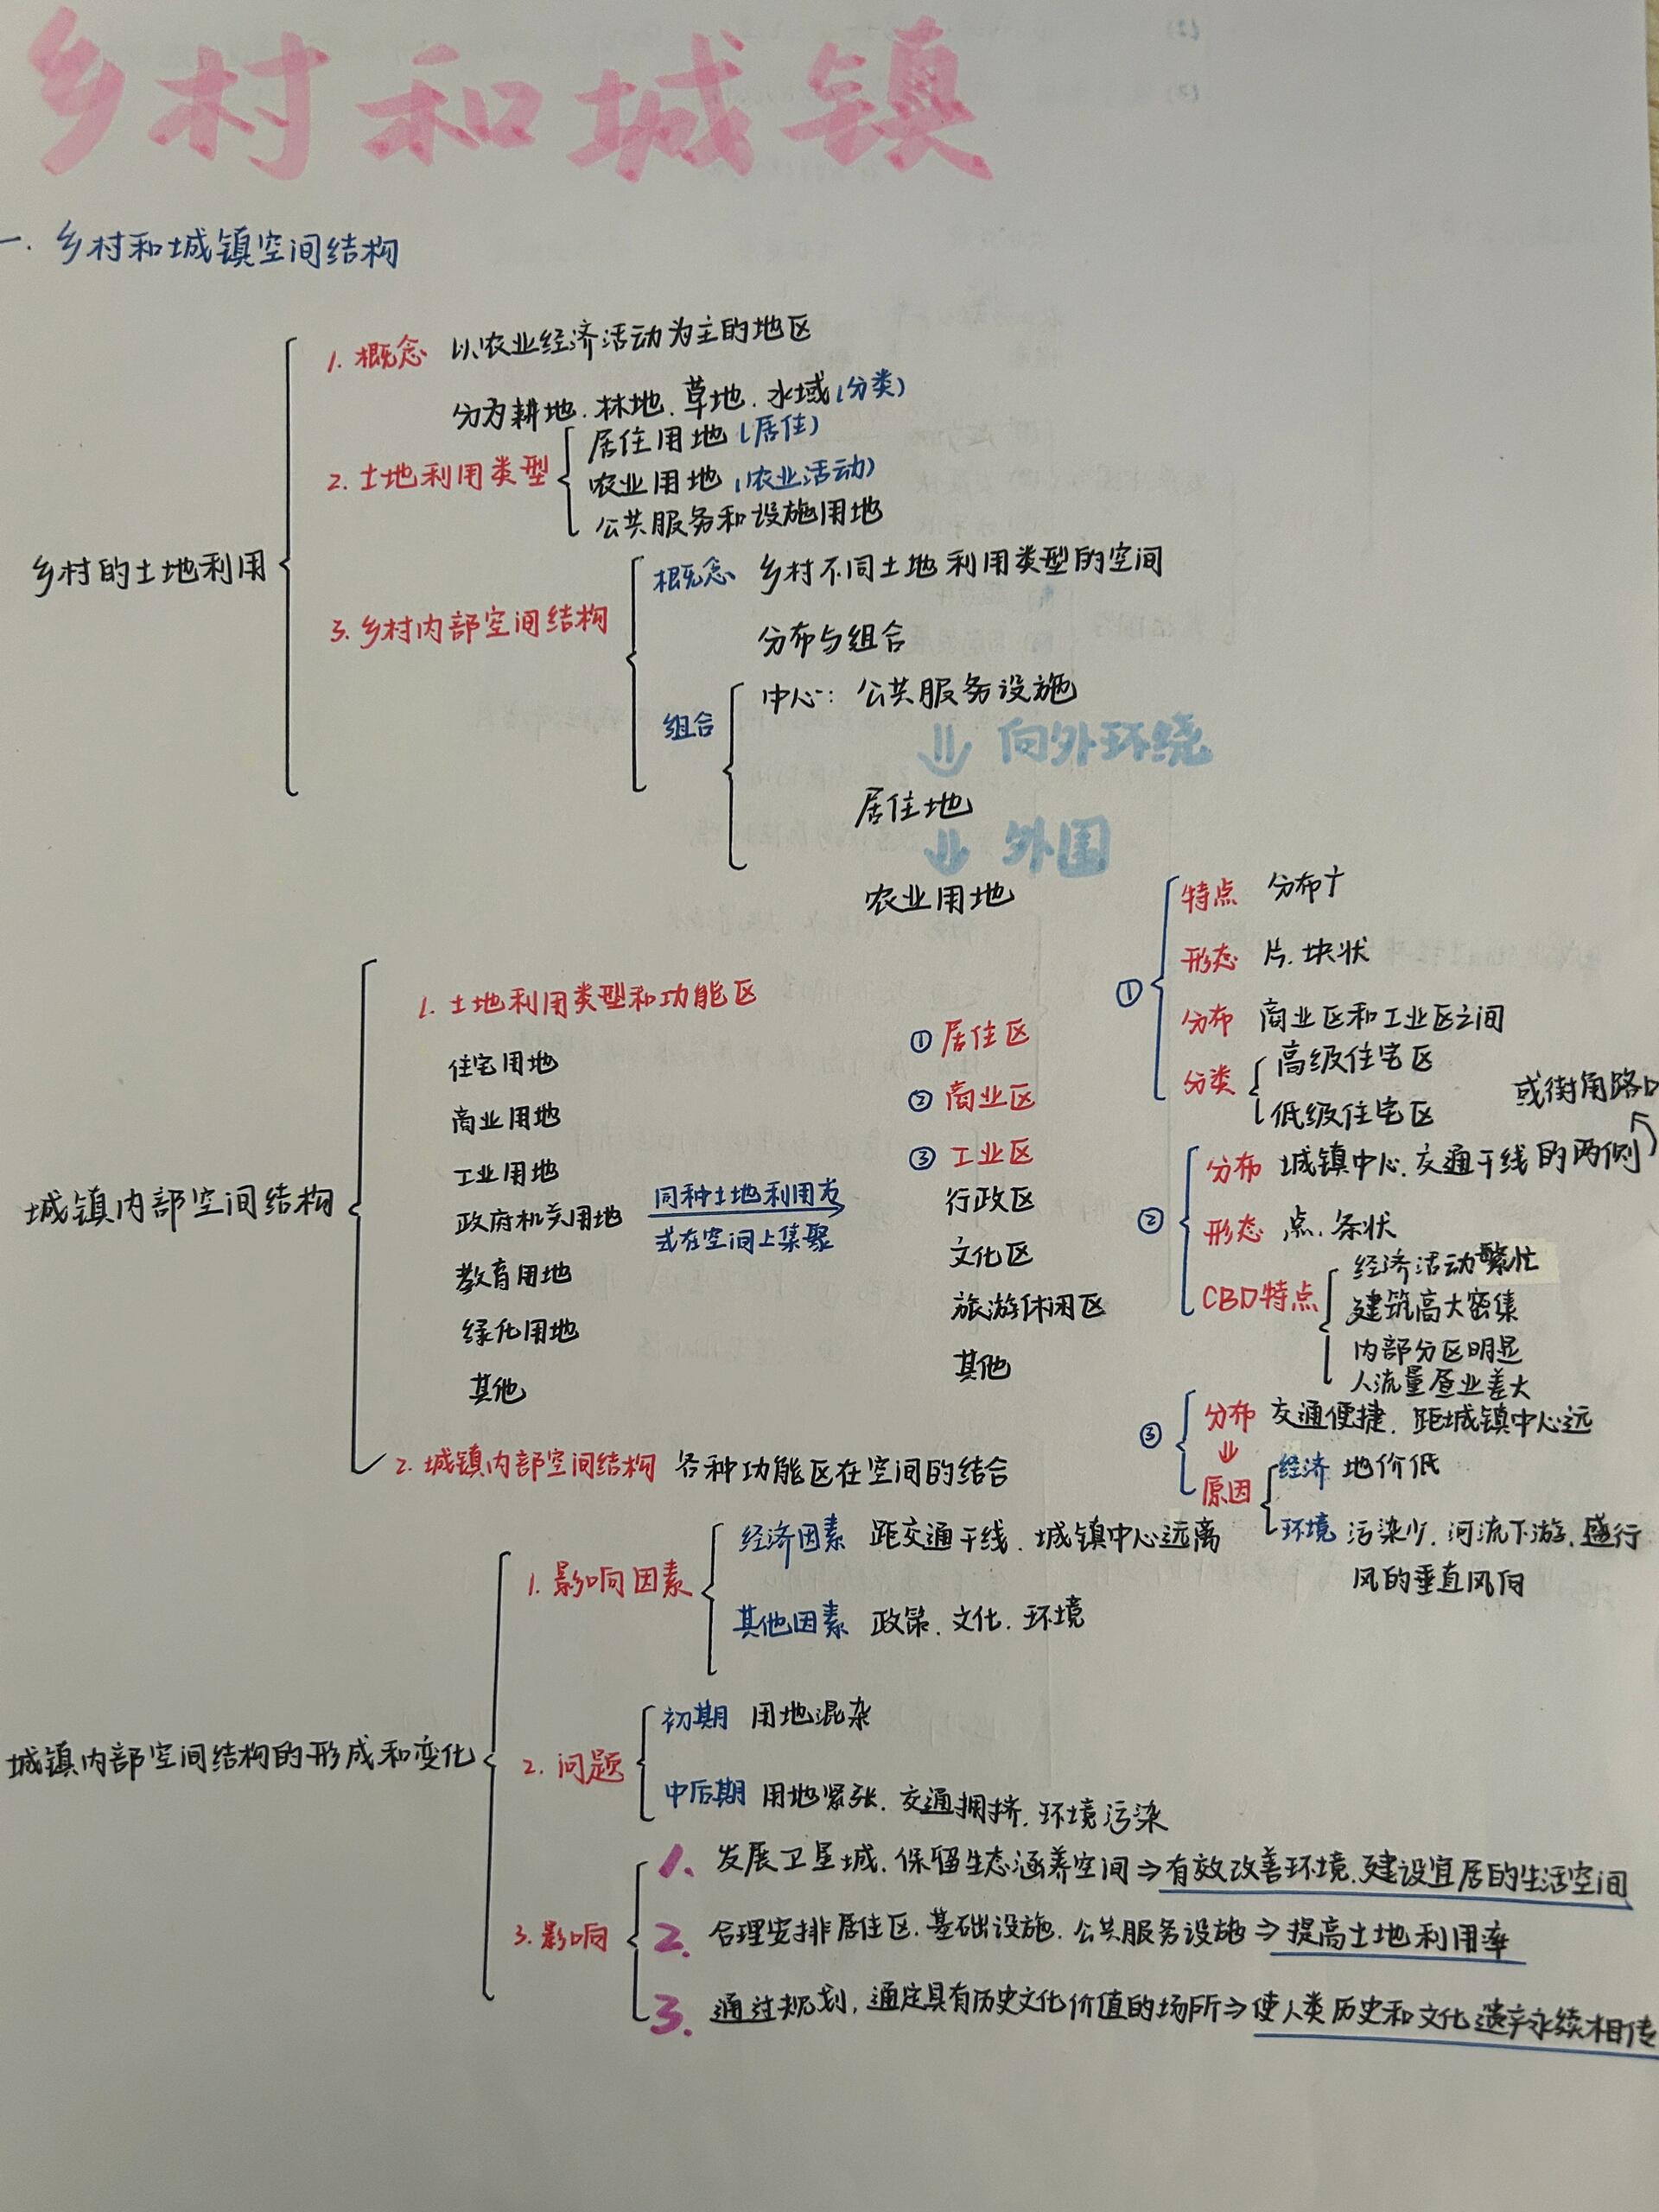 乡村和城镇
一. 乡村和城镇空间结构
乡村的土地利用
1. 概念 以农业经济活动为主的地区
分为耕地.林地.草地.水域(分类)
2. 土地利用类型
居住用地(居住)
农业用地(农业活动)
公共服务和设施用地
3. 乡村内部空间结构
概念 乡村不同土地利用类型的空间
分布与组合
组合
中心: 公共服务设施
⇓ 向外环绕
居住地
⇓ 外围
农业用地
城镇内部空间结构
1. 土地利用类型和功能区
住宅用地
商业用地
工业用地
政府机关用地
教育用地
绿化用地
其他
同种土地利用方
式在空间上集聚
① 居住区
② 商业区
③ 工业区
行政区
文化区
旅游休闲区
其他
①
特点 分布广
形态 片.块状
分布 商业区和工业区之间
分类
高级住宅区
低级住宅区
②
分布 城镇中心.交通干线的两侧
或街角路口
形态 点.条状
CBD特点
经济活动繁忙
建筑高大密集
内部分区明显
人流量昼业差大
③
分布 交通便捷. 距城镇中心远
⇓
原因
经济 地价低
环境 污染少.河流下游.盛行
风的垂直风向
2. 城镇内部空间结构 各种功能区在空间的结合
城镇内部空间结构的形成和变化
1. 影响因素
经济因素 距交通干线.城镇中心远离
其他因素 政策.文化.环境
2. 问题
初期 用地混杂
中后期 用地紧张.交通拥挤.环境污染
3. 影响
1. 发展卫星城.保留生态涵养空间⇒有效改善环境.建设宜居的生活空间
2. 合理安排居住区.基础设施.公共服务设施⇒提高土地利用率
3. 通过规划,通定具有历史文化价值的场所⇒使人类历史和文化遗产永续相传